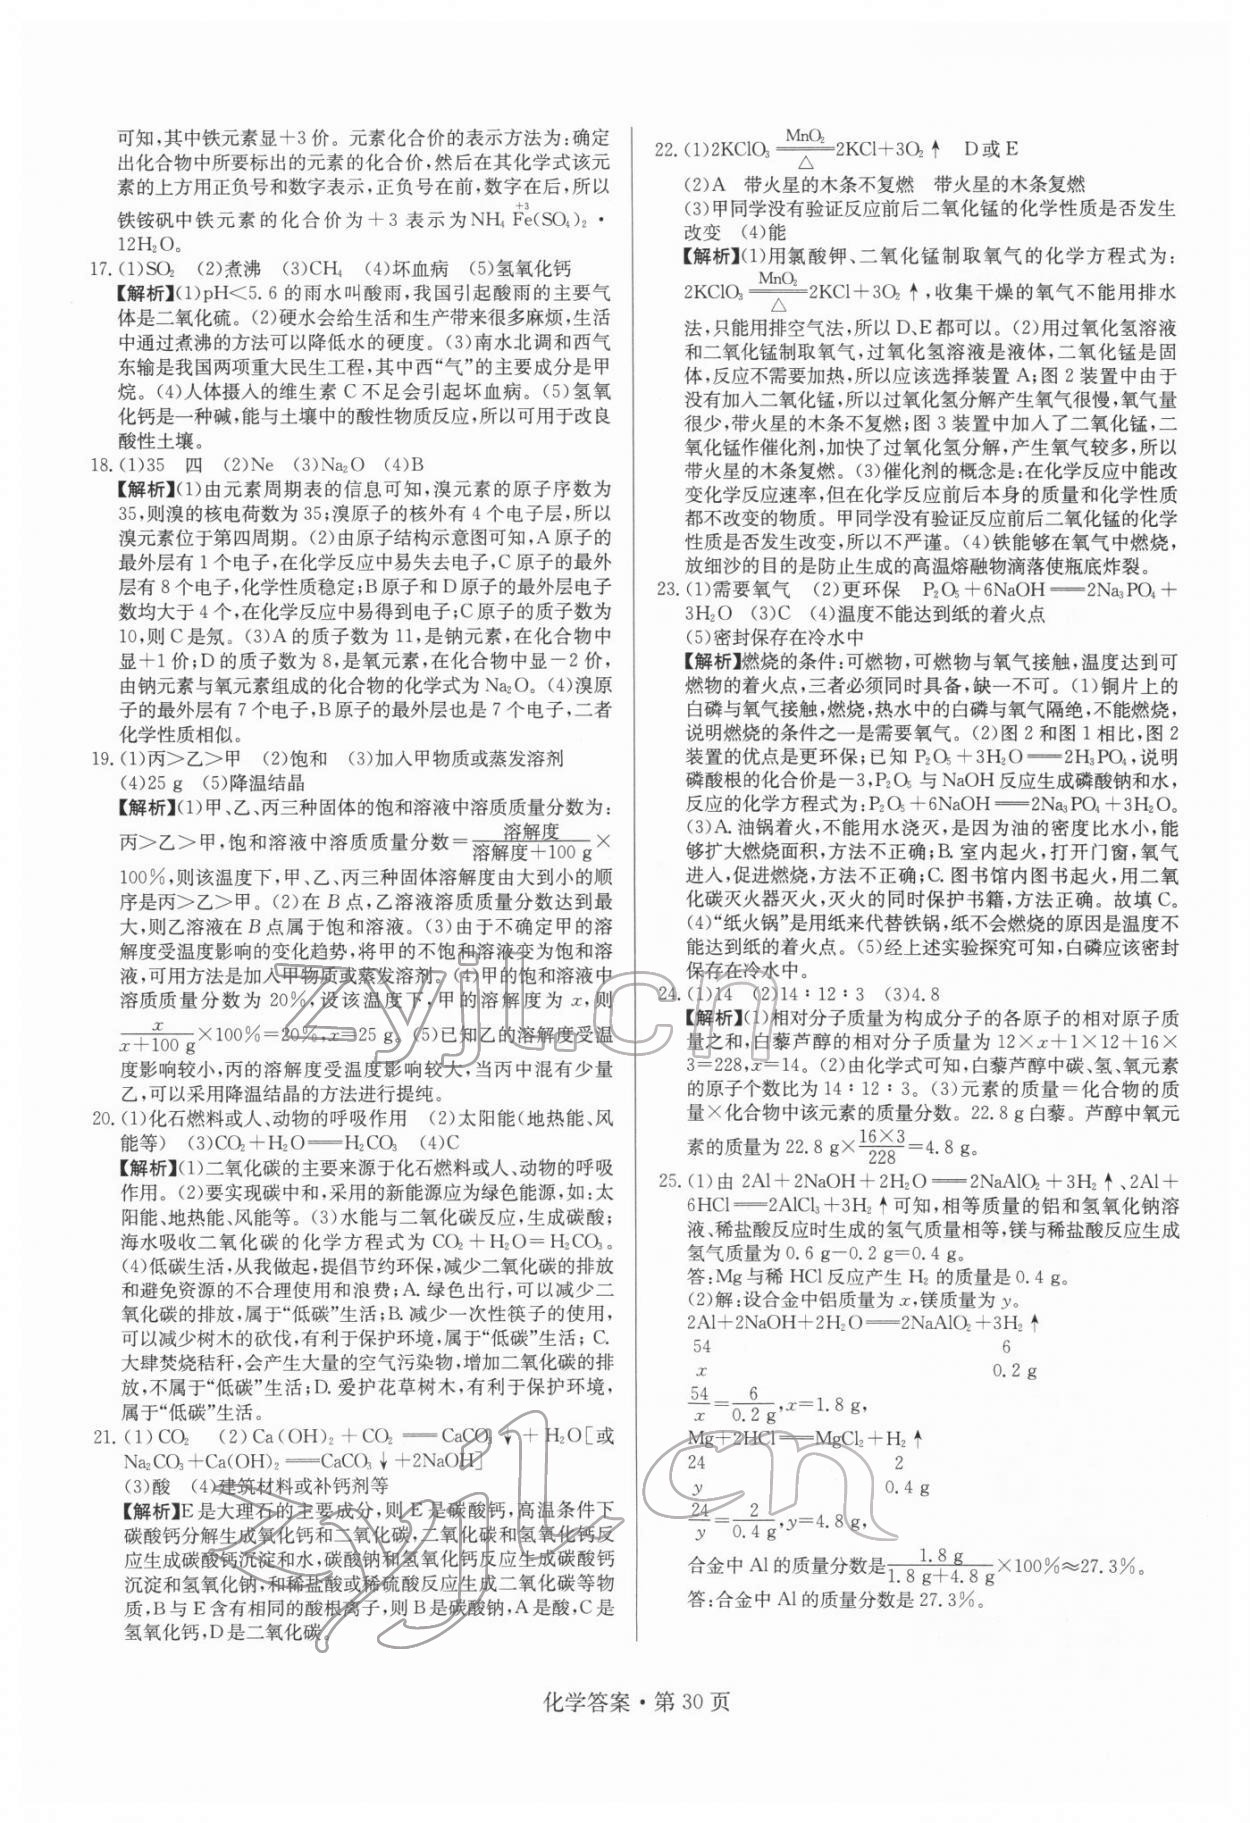 可知,其中铁元素显+3价。元素化合价的表示方法为:确定
出化合物中所要标出的元素的化合价,然后在其化学式该元
素的上方用正负号和数字表示,正负号在前,数字在后,所以
铁铵矾中铁元素的化合价为+3表示为NH₄Fe(+3)(SO₄)₂·
12H₂O。
17.(1)SO₂ (2)煮沸 (3)CH₄ (4)坏血病 (5)氢氧化钙
【解析】(1)pH<5.6的雨水叫酸雨,我国引起酸雨的主要气
体是二氧化硫。(2)硬水会给生活和生产带来很多麻烦,生活
中通过煮沸的方法可以降低水的硬度。(3)南水北调和西气
东输是我国两项重大民生工程,其中西“气”的主要成分是甲
烷。(4)人体摄入的维生素C不足会引起坏血病。(5)氢氧
化钙是一种碱,能与土壤中的酸性物质反应,所以可用于改良
酸性土壤。
18.(1)35 四 (2)Ne (3)Na₂O (4)B
【解析】(1)由元素周期表的信息可知,溴元素的原子序数为
35,则溴的核电荷数为35;溴原子的核外有4个电子层,所以
溴元素位于第四周期。(2)由原子结构示意图可知,A原子的
最外层有1个电子,在化学反应中易失去电子,C原子的最外
层有8个电子,化学性质稳定;B原子和D原子的最外层电子
数均大于4个,在化学反应中易得到电子;C原子的质子数为
10,则C是氖。(3)A的质子数为11,是钠元素,在化合物中
显+1价;D的质子数为8,是氧元素,在化合物中显-2价,
由钠元素与氧元素组成的化合物的化学式为Na₂O。(4)溴原
子的最外层有7个电子,B原子的最外层也是7个电子,二者
化学性质相似。
19.(1)丙>乙>甲 (2)饱和 (3)加入甲物质或蒸发溶剂
(4)25 g (5)降温结晶
【解析】(1)甲、乙、丙三种固体的饱和溶液中溶质质量分数为:
丙>乙>甲,饱和溶液中溶质质量分数=溶解度/(溶解度+100 g)×
100%,则该温度下,甲、乙、丙三种固体溶解度由大到小的顺
序是丙>乙>甲。(2)在B点,乙溶液溶质质量分数达到最
大,则乙溶液在B点属于饱和溶液。(3)由于不确定甲的溶
解度受温度影响的变化趋势,将甲的不饱和溶液变为饱和溶
液,可用方法是加入甲物质或蒸发溶剂。(4)甲的饱和溶液中
溶质质量分数为20%,设该温度下,甲的溶解度为x,则
x/(x+100 g)×100%=20%,x=25 g。(5)已知乙的溶解度受温
度影响较小,丙的溶解度受温度影响较大,当丙中混有少量
乙,可以采用降温结晶的方法进行提纯。
20.(1)化石燃料或人、动物的呼吸作用 (2)太阳能(地热能、风
能等) (3)CO₂+H₂O══H₂CO₃ (4)C
【解析】(1)二氧化碳的主要来源于化石燃料或人、动物的呼吸
作用。(2)要实现碳中和,采用的新能源应为绿色能源,如:太
阳能、地热能、风能等。(3)水能与二氧化碳反应,生成碳酸;
海水吸收二氧化碳的化学方程式为CO₂+H₂O=H₂CO₃。
(4)低碳生活,从我做起,提倡节约环保,减少二氧化碳的排放
和避免资源的不合理使用和浪费;A.绿色出行,可以减少二
氧化碳的排放,属于“低碳”生活;B.减少一次性筷子的使用,
可以减少树木的砍伐,有利于保护环境,属于“低碳”生活;C.
大肆焚烧秸秆,会产生大量的空气污染物,增加二氧化碳的排
放,不属于“低碳”生活;D.爱护花草树木,有利于保护环境,
属于“低碳”生活。
21.(1)CO₂ (2)Ca(OH)₂+CO₂══CaCO₃↓+H₂O[或
Na₂CO₃+Ca(OH)₂══CaCO₃↓+2NaOH]
(3)酸 (4)建筑材料或补钙剂等
【解析】E是大理石的主要成分,则E是碳酸钙,高温条件下
碳酸钙分解生成氧化钙和二氧化碳,二氧化碳和氢氧化钙反
应生成碳酸钙沉淀和水,碳酸钠和氢氧化钙反应生成碳酸钙
沉淀和氢氧化钠,和稀盐酸或稀硫酸反应生成二氧化碳等物
质,B与E含有相同的酸根离子,则B是碳酸钠,A是酸,C是
氢氧化钙,D是二氧化碳。
22.(1)2KClO₃ ══(MnO₂/△) 2KCl+3O₂↑ D或E
(2)A 带火星的木条不复燃 带火星的木条复燃
(3)甲同学没有验证反应前后二氧化锰的化学性质是否发生
改变 (4)能
【解析】(1)用氯酸钾、二氧化锰制取氧气的化学方程式为:
2KClO₃ ══(MnO₂/△) 2KCl+3O₂↑,收集干燥的氧气不能用排水
法,只能用排空气法,所以D、E都可以。(2)用过氧化氢溶液
和二氧化锰制取氧气,过氧化氢溶液是液体,二氧化锰是固
体,反应不需要加热,所以应该选择装置A;图2装置中由于
没有加入二氧化锰,所以过氧化氢分解产生氧气很慢,氧气量
很少,带火星的木条不复燃;图3装置中加入了二氧化锰,二
氧化锰作催化剂,加快了过氧化氢分解,产生氧气较多,所以
带火星的木条复燃。(3)催化剂的概念是:在化学反应中能改
变化学反应速率,但在化学反应前后本身的质量和化学性质
都不改变的物质。甲同学没有验证反应前后二氧化锰的化学
性质是否发生改变,所以不严谨。(4)铁能够在氧气中燃烧,
放细沙的目的是防止生成的高温熔融物滴落使瓶底炸裂。
23.(1)需要氧气 (2)更环保 P₂O₅+6NaOH══2Na₃PO₄+
3H₂O (3)C (4)温度不能达到纸的着火点
(5)密封保存在冷水中
【解析】燃烧的条件:可燃物,可燃物与氧气接触,温度达到可
燃物的着火点,三者必须同时具备,缺一不可。(1)铜片上的
白磷与氧气接触,燃烧,热水中的白磷与氧气隔绝,不能燃烧,
说明燃烧的条件之一是需要氧气。(2)图2和图1相比,图2
装置的优点是更环保;已知P₂O₅+3H₂O══2H₃PO₄,说明
磷酸根的化合价是-3,P₂O₅与NaOH反应生成磷酸钠和水,
反应的化学方程式为:P₂O₅+6NaOH══2Na₃PO₄+3H₂O。
(3)A.油锅着火,不能用水浇灭,是因为油的密度比水小,能
够扩大燃烧面积,方法不正确;B.室内起火,打开门窗,氧气
进入,促进燃烧,方法不正确;C.图书馆内图书起火,用二氧
化碳灭火器灭火,灭火的同时保护书籍,方法正确。故填C。
(4)“纸火锅”是用纸来代替铁锅,纸不会燃烧的原因是温度不
能达到纸的着火点。(5)经上述实验探究可知,白磷应该密封
保存在冷水中。
24.(1)14 (2)14∶12∶3 (3)4.8
【解析】(1)相对分子质量为构成分子的各原子的相对原子质
量之和,白藜芦醇的相对分子质量为12×x+1×12+16×
3=228,x=14。(2)由化学式可知,白藜芦醇中碳、氢、氧元素
的原子个数比为14∶12∶3。(3)元素的质量=化合物的质
量×化合物中该元素的质量分数。22.8 g白藜。芦醇中氧元
素的质量为22.8 g×(16×3)/228=4.8 g。
25.(1)由2Al+2NaOH+2H₂O══2NaAlO₂+3H₂↑、2Al+
6HCl══2AlCl₃+3H₂↑可知,相等质量的铝和氢氧化钠溶
液、稀盐酸反应时生成的氢气质量相等,镁与稀盐酸反应生成
氢气质量为0.6 g-0.2 g=0.4 g。
答:Mg与稀HCl反应产生H₂的质量是0.4 g。
(2)解:设合金中铝质量为x,镁质量为y。
2Al+2NaOH+2H₂O══2NaAlO₂+3H₂↑
54 6
x 0.2 g
54/x=6/0.2 g,x=1.8 g,
Mg+2HCl══MgCl₂+H₂↑
24 2
y 0.4 g
24/y=2/0.4 g,y=4.8 g,
合金中Al的质量分数是1.8 g/(1.8 g+4.8 g)×100%≈27.3%。
答:合金中Al的质量分数是27.3%。
化学答案·第30页
zyjl.cn
zyjl.cn